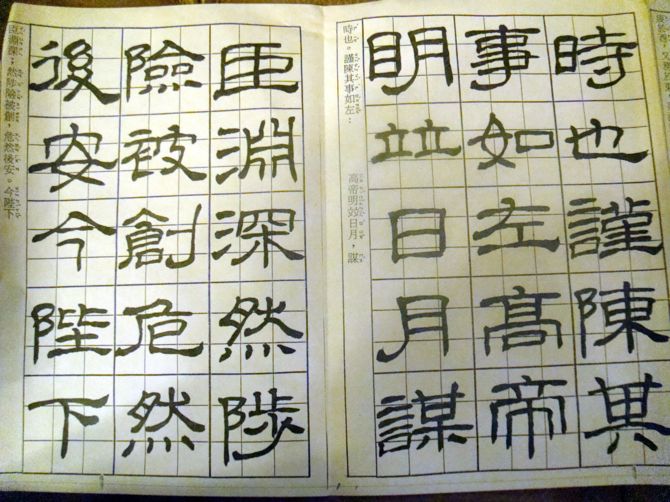 時也謹陳其
事如左髙帝
明竝日月謀
時也。謹陳其事如左:
高帝明竝日月,謀
臣淵深然陟
險被創危然
後安今陛下
臣淵深;然陟險被創,危然後安。今陛下